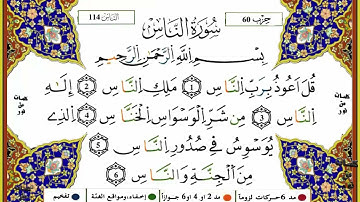 حزب 60
الناس 114
سُورَةُ النَّاسِ
بِسْمِ اللَّهِ الرَّحْمَنِ الرَّحِيمِ
قُلَ اَعُوذُ بِرَبِّ اِلنَّاسِ 1 مَلِكِ اِلنَّاسِ 2 إِلَٰهِ
اِلنَّاسِ 3 مِن شَرِّ اِلْوَسْوَاسِ اِلْخَنَّاسِ 4 اِلذِے
يُوَسْوِسُ فِے صُدُورِ اِلنَّاسِ 5
مِنَ اَلْجِنَّةِ وَالنَّاسِ 6
مد 6 حركات لزوماً مد 2 او 4 او 6 جوازاً إخفاء، ومواقع الغنّة تفخيم